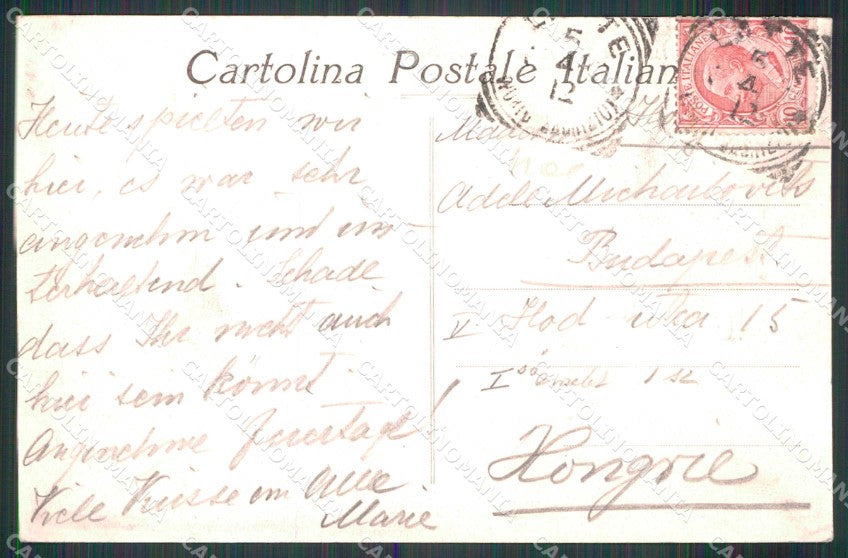 Cartolina Postale Italian
Heute spielten wir
hier, es war sehr
angenehm und un-
terhaltend. Schade
dass Ihr nicht auch
hier sein könnt.
Angenehme Feiertage!
Viele Küsse an Alle
Marie
Adele
Budapest
V Hod utca 15
I ső emelet 1 sz
Hongrie
5
4
12
5
4
12
CARTOLINOMANIA